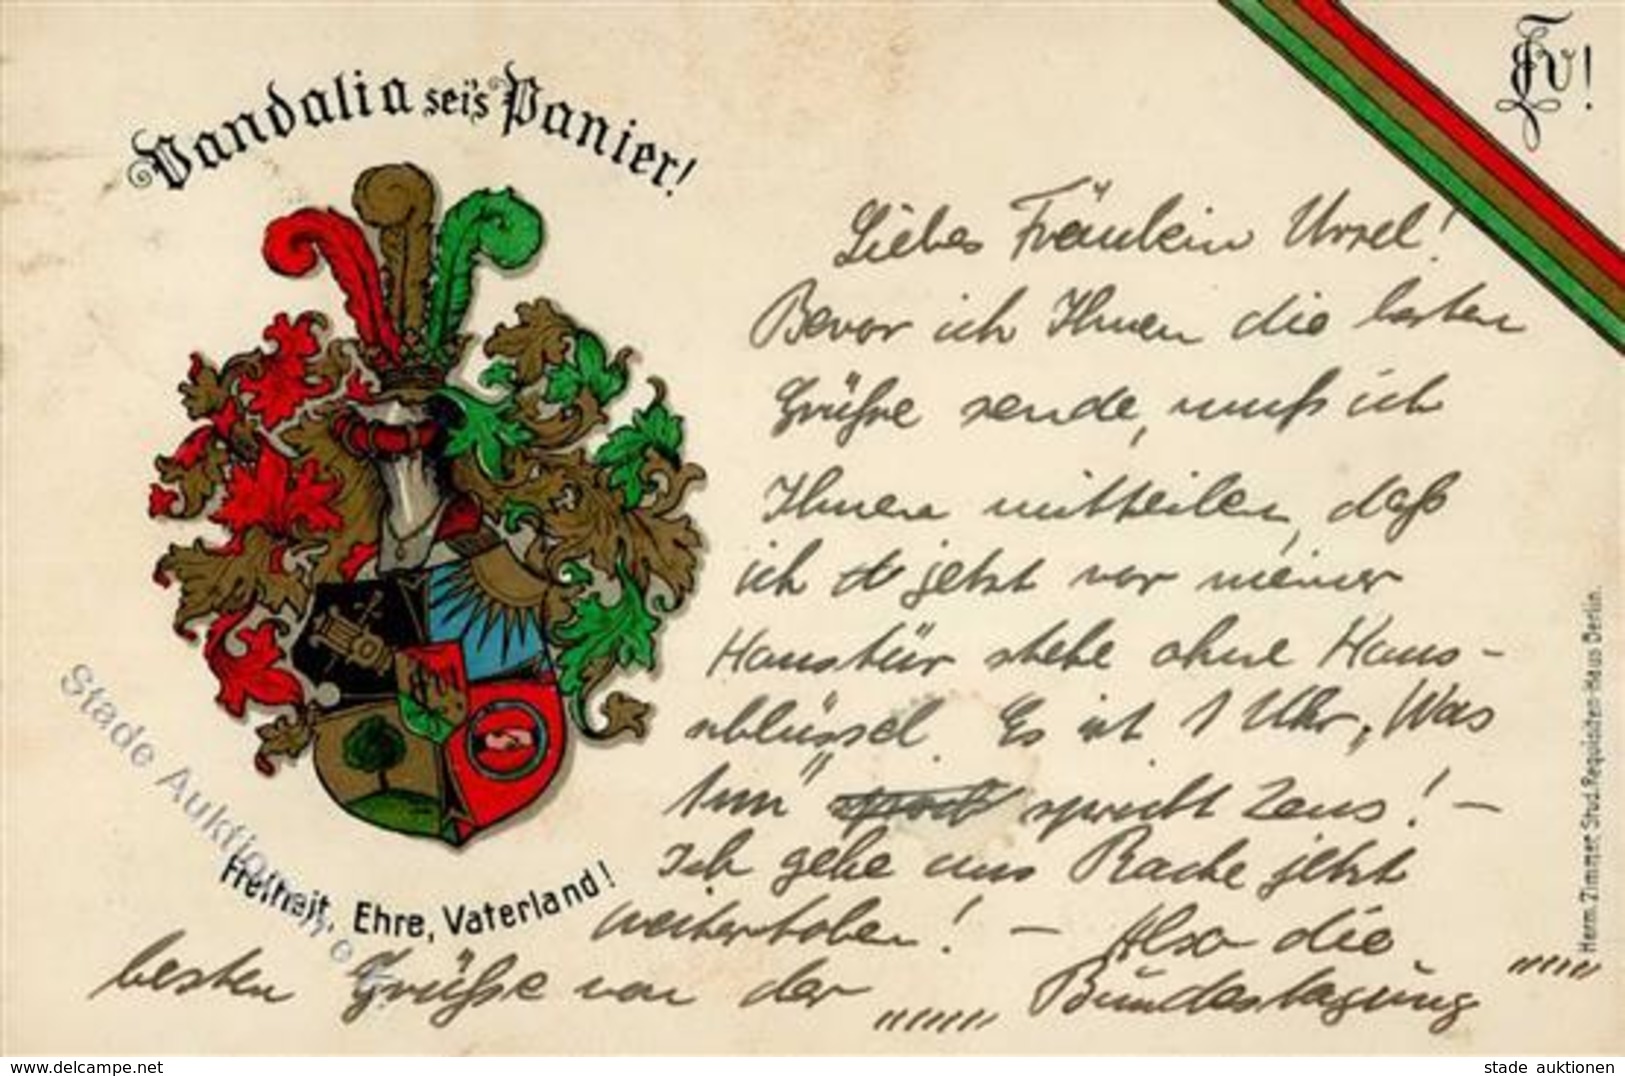 Vandalia sei's Panier!
Fv!
Liebes Fräulein Ursel!
Bevor ich Ihnen die besten
Grüße sende, muß ich
Ihnen mitteilen, daß
ich jetzt vor meiner
Haustür stehe ohne Haus-
schlüssel. Es ist 1 Uhr, „Was
tun" spricht Zeus! –
Ich gehe aus Rache jetzt
weitertoben! – Also die
besten Grüße von der """ Bundestagung """
Freiheit, Ehre, Vaterland!
Herm. Zimmer, Stud. Requisiten-Haus Berlin.
Stade Auktionen
www.delcampe.net
stade auktionen